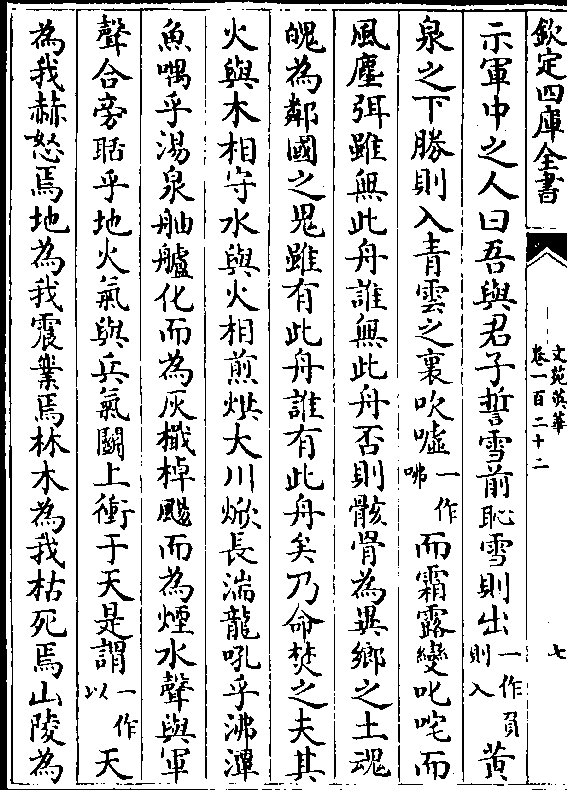 欽定四庫全書
文苑英華
卷一百二十二
七
示軍中之人曰吾與君子誓雪前恥雪則出一作負則入黃
泉之下勝則入青雲之裏吹噓一作咈而霜露變叱咤而
風塵弭雖無此舟誰無此舟否則骸骨為異鄉之土魂
魄為鄰國之鬼雖有此舟誰有此舟矣乃命焚之夫其
火與木相守水與火相煎烘大川焮長湍龍吼乎沸潭
魚喁乎湯泉舳艫化而為灰檝棹飈而為煙水聲與軍
聲合旁聒乎地火氣與兵氣鬭上衝于天是謂一作以天
為我赫怒焉地為我震業焉林木為我枯死焉山陵為